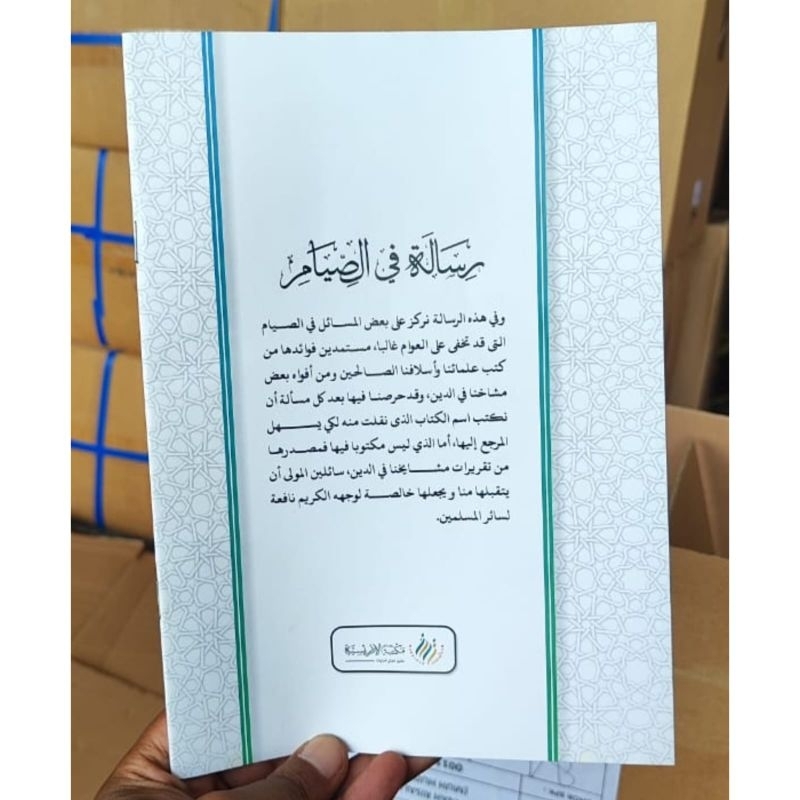 رسالة في الصيام
وفي هذه الرسالة نركز على بعض المسائل في الصيام
التى قد تخفى على العوام غالبا، مستمدين فوائدها من
كتب علمائنا وأسلافنا الصالحين ومن أفواه بعض
مشاخنا في الدين، وقد حرصنا فيها بعد كل مسألة أن
نكتب اسم الكتاب الذى نقلت منه لكي يسهل
المرجع إليها، أما الذي ليس مكتوبا فيها فمصدرها
من تقريرات مشايخنا في الدين، سائلين المولى أن
يتقبلها منا ويجعلها خالصة لوجهه الكريم نافعة
لسائر المسلمين.